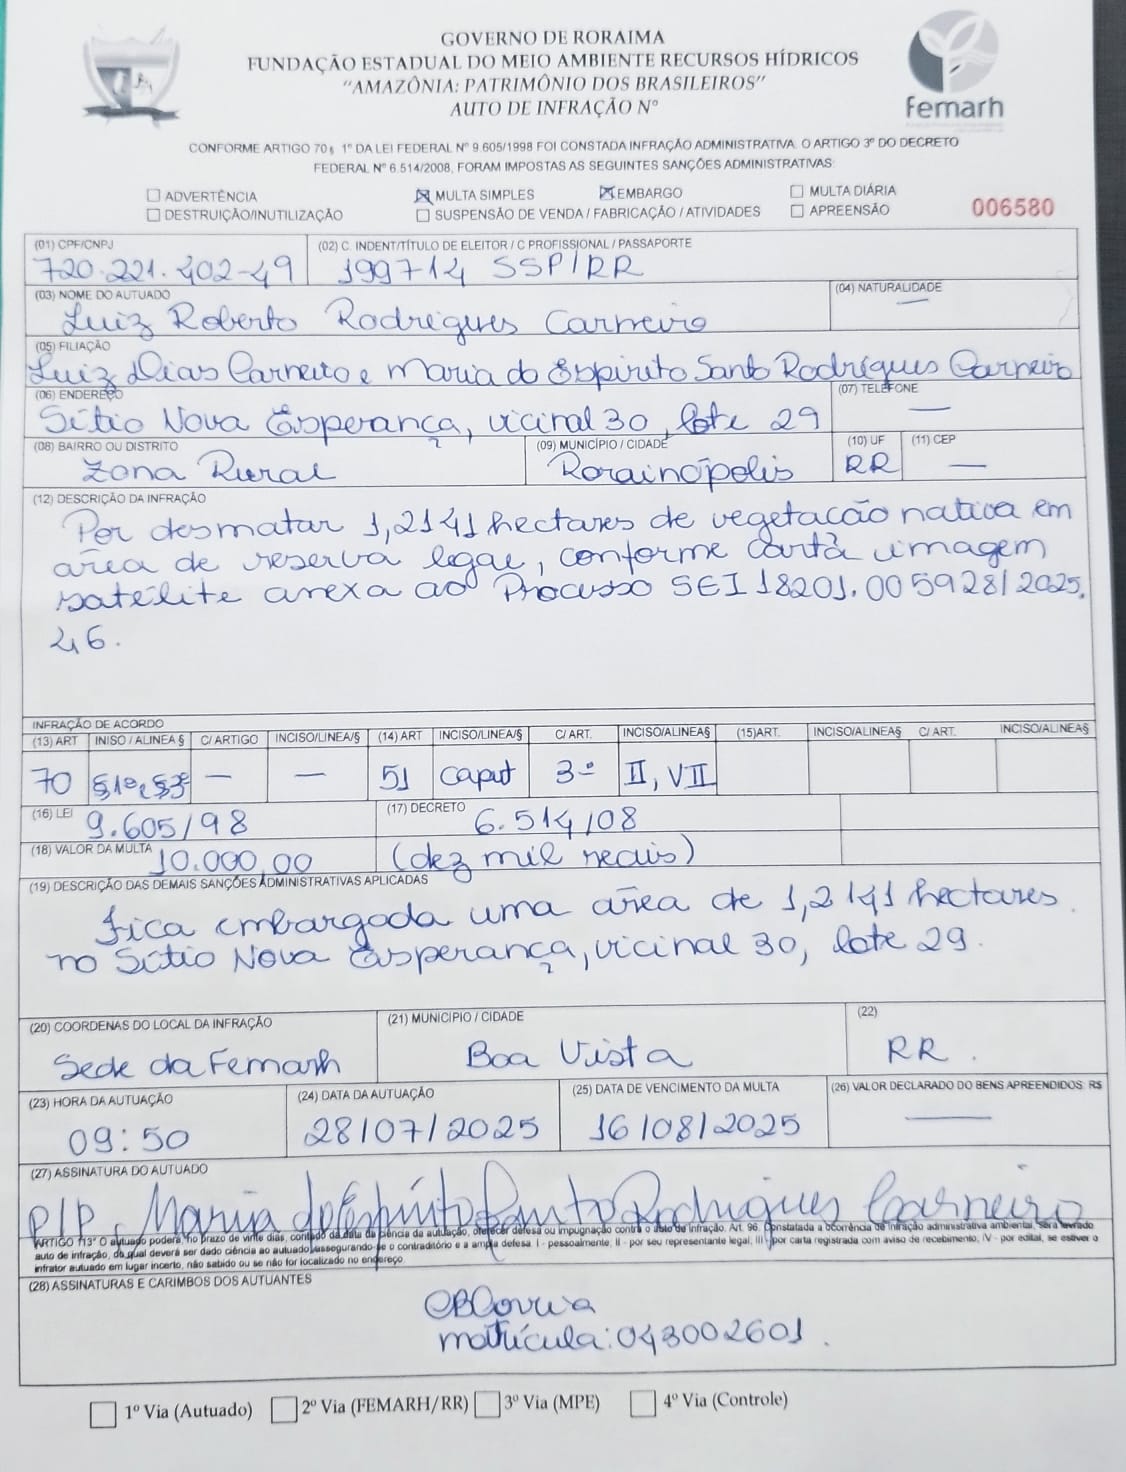 GOVERNO DE RORAIMA
FUNDAÇÃO ESTADUAL DO MEIO AMBIENTE RECURSOS HÍDRICOS
"AMAZÔNIA: PATRIMÔNIO DOS BRASILEIROS"
AUTO DE INFRAÇÃO Nº
femarh
CONFORME ARTIGO 70 § 1º DA LEI FEDERAL Nº 9.605/1998 FOI CONSTADA INFRAÇÃO ADMINISTRATIVA. O ARTIGO 3º DO DECRETO
FEDERAL Nº 6.514/2008, FORAM IMPOSTAS AS SEGUINTES SANÇÕES ADMINISTRATIVAS:
ADVERTÊNCIA MULTA SIMPLES EMBARGO MULTA DIÁRIA
DESTRUIÇÃO/INUTILIZAÇÃO SUSPENSÃO DE VENDA / FABRICAÇÃO / ATIVIDADES APREENSÃO 006580
(01) CPF/CNPJ (02) C. INDENT/TÍTULO DE ELEITOR / C PROFISSIONAL / PASSAPORTE
720.221.402-49 199714 SSP/RR
(03) NOME DO AUTUADO (04) NATURALIDADE
Luiz Roberto Rodrigues Carneiro —
(05) FILIAÇÃO
Luiz Dias Carneiro e Maria do Espirito Santo Rodrigues Carneiro
(06) ENDEREÇO (07) TELEFONE
Sítio Nova Esperança, vicinal 30, lote 29 —
(08) BAIRRO OU DISTRITO (09) MUNICÍPIO / CIDADE (10) UF (11) CEP
Zona Rural Rorainópolis RR —
(12) DESCRIÇÃO DA INFRAÇÃO
Por desmatar 1,2141 hectares de vegetação nativa em
área de reserva legal, conforme carta imagem
satélite anexa ao Processo SEI 18201.005928/2025.
46.
INFRAÇÃO DE ACORDO
(13) ART INISO / ALINEA § C/ ARTIGO INCISO/LINEA/§ (14) ART INCISO/LINEA/§ C/ ART. INCISO/ALINEA§ (15)ART. INCISO/ALINEA§ C/ ART. INCISO/ALINEA§
70 §1º e §3º — — 51 caput 3º II, VII
(16) LEI 9.605/98 (17) DECRETO 6.514/08
(18) VALOR DA MULTA 10.000,00 (dez mil reais)
(19) DESCRIÇÃO DAS DEMAIS SANÇÕES ADMINISTRATIVAS APLICADAS
Fica embargada uma área de 1,2141 hectares.
no Sítio Nova Esperança, vicinal 30, lote 29.
(20) COORDENAS DO LOCAL DA INFRAÇÃO (21) MUNICÍPIO / CIDADE (22)
Sede da Femarh Boa Vista RR.
(23) HORA DA AUTUAÇÃO (24) DATA DA AUTUAÇÃO (25) DATA DE VENCIMENTO DA MULTA (26) VALOR DECLARADO DO BENS APREENDIDOS: R$
09:50 28/07/2025 16/08/2025 —
(27) ASSINATURA DO AUTUADO
P/P. Maria do Espírito Santo Rodrigues Carneiro
ARTIGO 113º O autuado poderá, no prazo de vinte dias, contado da data da ciência da autuação, oferecer defesa ou impugnação contra o auto de infração. Art. 96. Constatada a ocorrência de infração administrativa ambiental, será lavrado
auto de infração, do qual deverá ser dado ciência ao autuado, assegurando-se o contraditório e a ampla defesa. I - pessoalmente; II - por seu representante legal; III - por carta registrada com aviso de recebimento; IV - por edital, se estiver o
infrator autuado em lugar incerto, não sabido ou se não for localizado no endereço.
(28) ASSINATURAS E CARIMBOS DOS AUTUANTES
matrícula: 043002601.
1º Via (Autuado) 2º Via (FEMARH/RR) 3º Via (MPE) 4º Via (Controle)